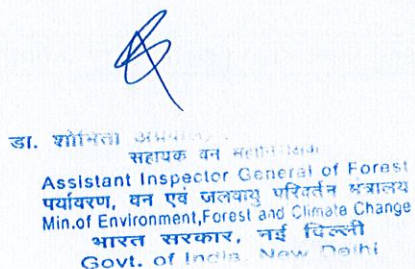 डा. शोभिता अग्रवाल
सहायक वन महानिरीक्षक
Assistant Inspector General of Forest
पर्यावरण, वन एवं जलवायु परिवर्तन मंत्रालय
Min.of Environment,Forest and Climate Change
भारत सरकार, नई दिल्ली
Govt. of India, New Delhi